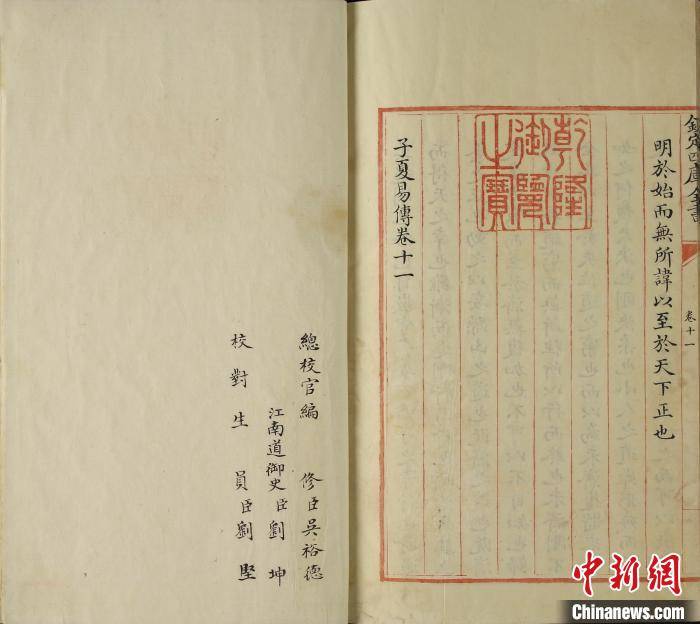 欽定四庫全書
卷十一
明於始而無所諱以至於天下正也
乾隆御覽之寶
子夏易傳卷十一
總校官編修臣吳裕德
江南道御史臣劉坤
校對生員臣劉堅
中新網
Chinanews.com